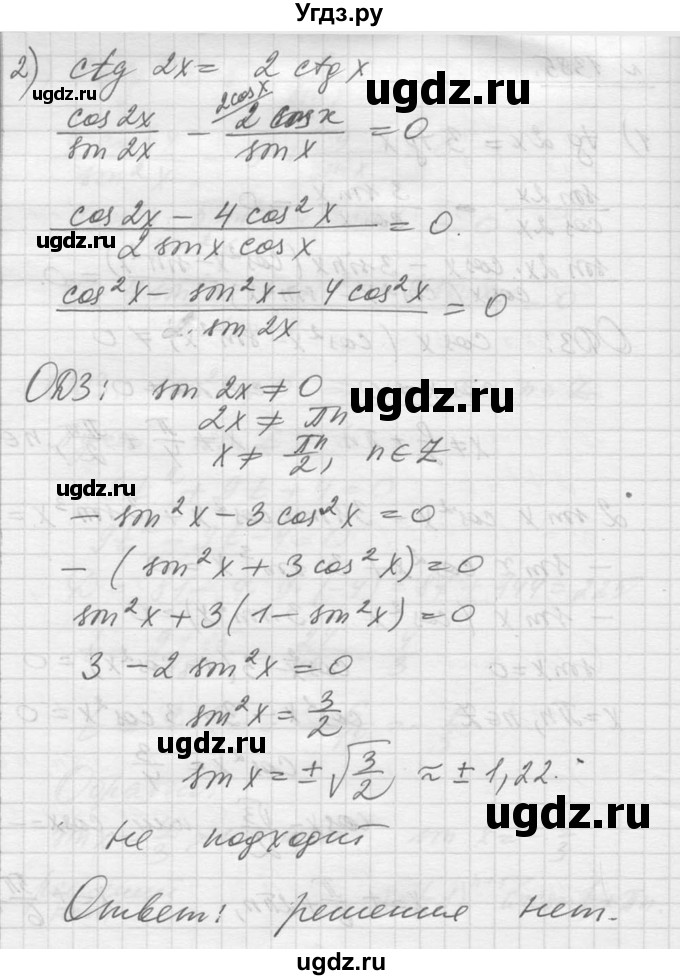 Угдз.ру
2) ctg 2x = 2 ctg x
ugdz.ru ugdz.ru
2cosx
cos2x/sin2x - 2cosx/sinx = 0
(cos2x - 4cos²x)/(2 sinx cosx) = 0.
ugdz.ru
(cos²x - sin²x - 4cos²x)/(sin2x) = 0
ОДЗ: sin 2x ≠ 0
ugdz.ru
2x ≠ πn
x ≠ πn/2, n∈Z
ugdz.ru
- sin²x - 3cos²x = 0
- (sin²x + 3cos²x) = 0
sin²x + 3(1 - sin²x) = 0
3 - 2sin²x = 0
sin²x = 3/2
ugdz.ru
sin x = ±√(3/2) ≈ ±1,22.
ugdz.ru
не подходит
Ответ: решения нет.
ugdz.ru